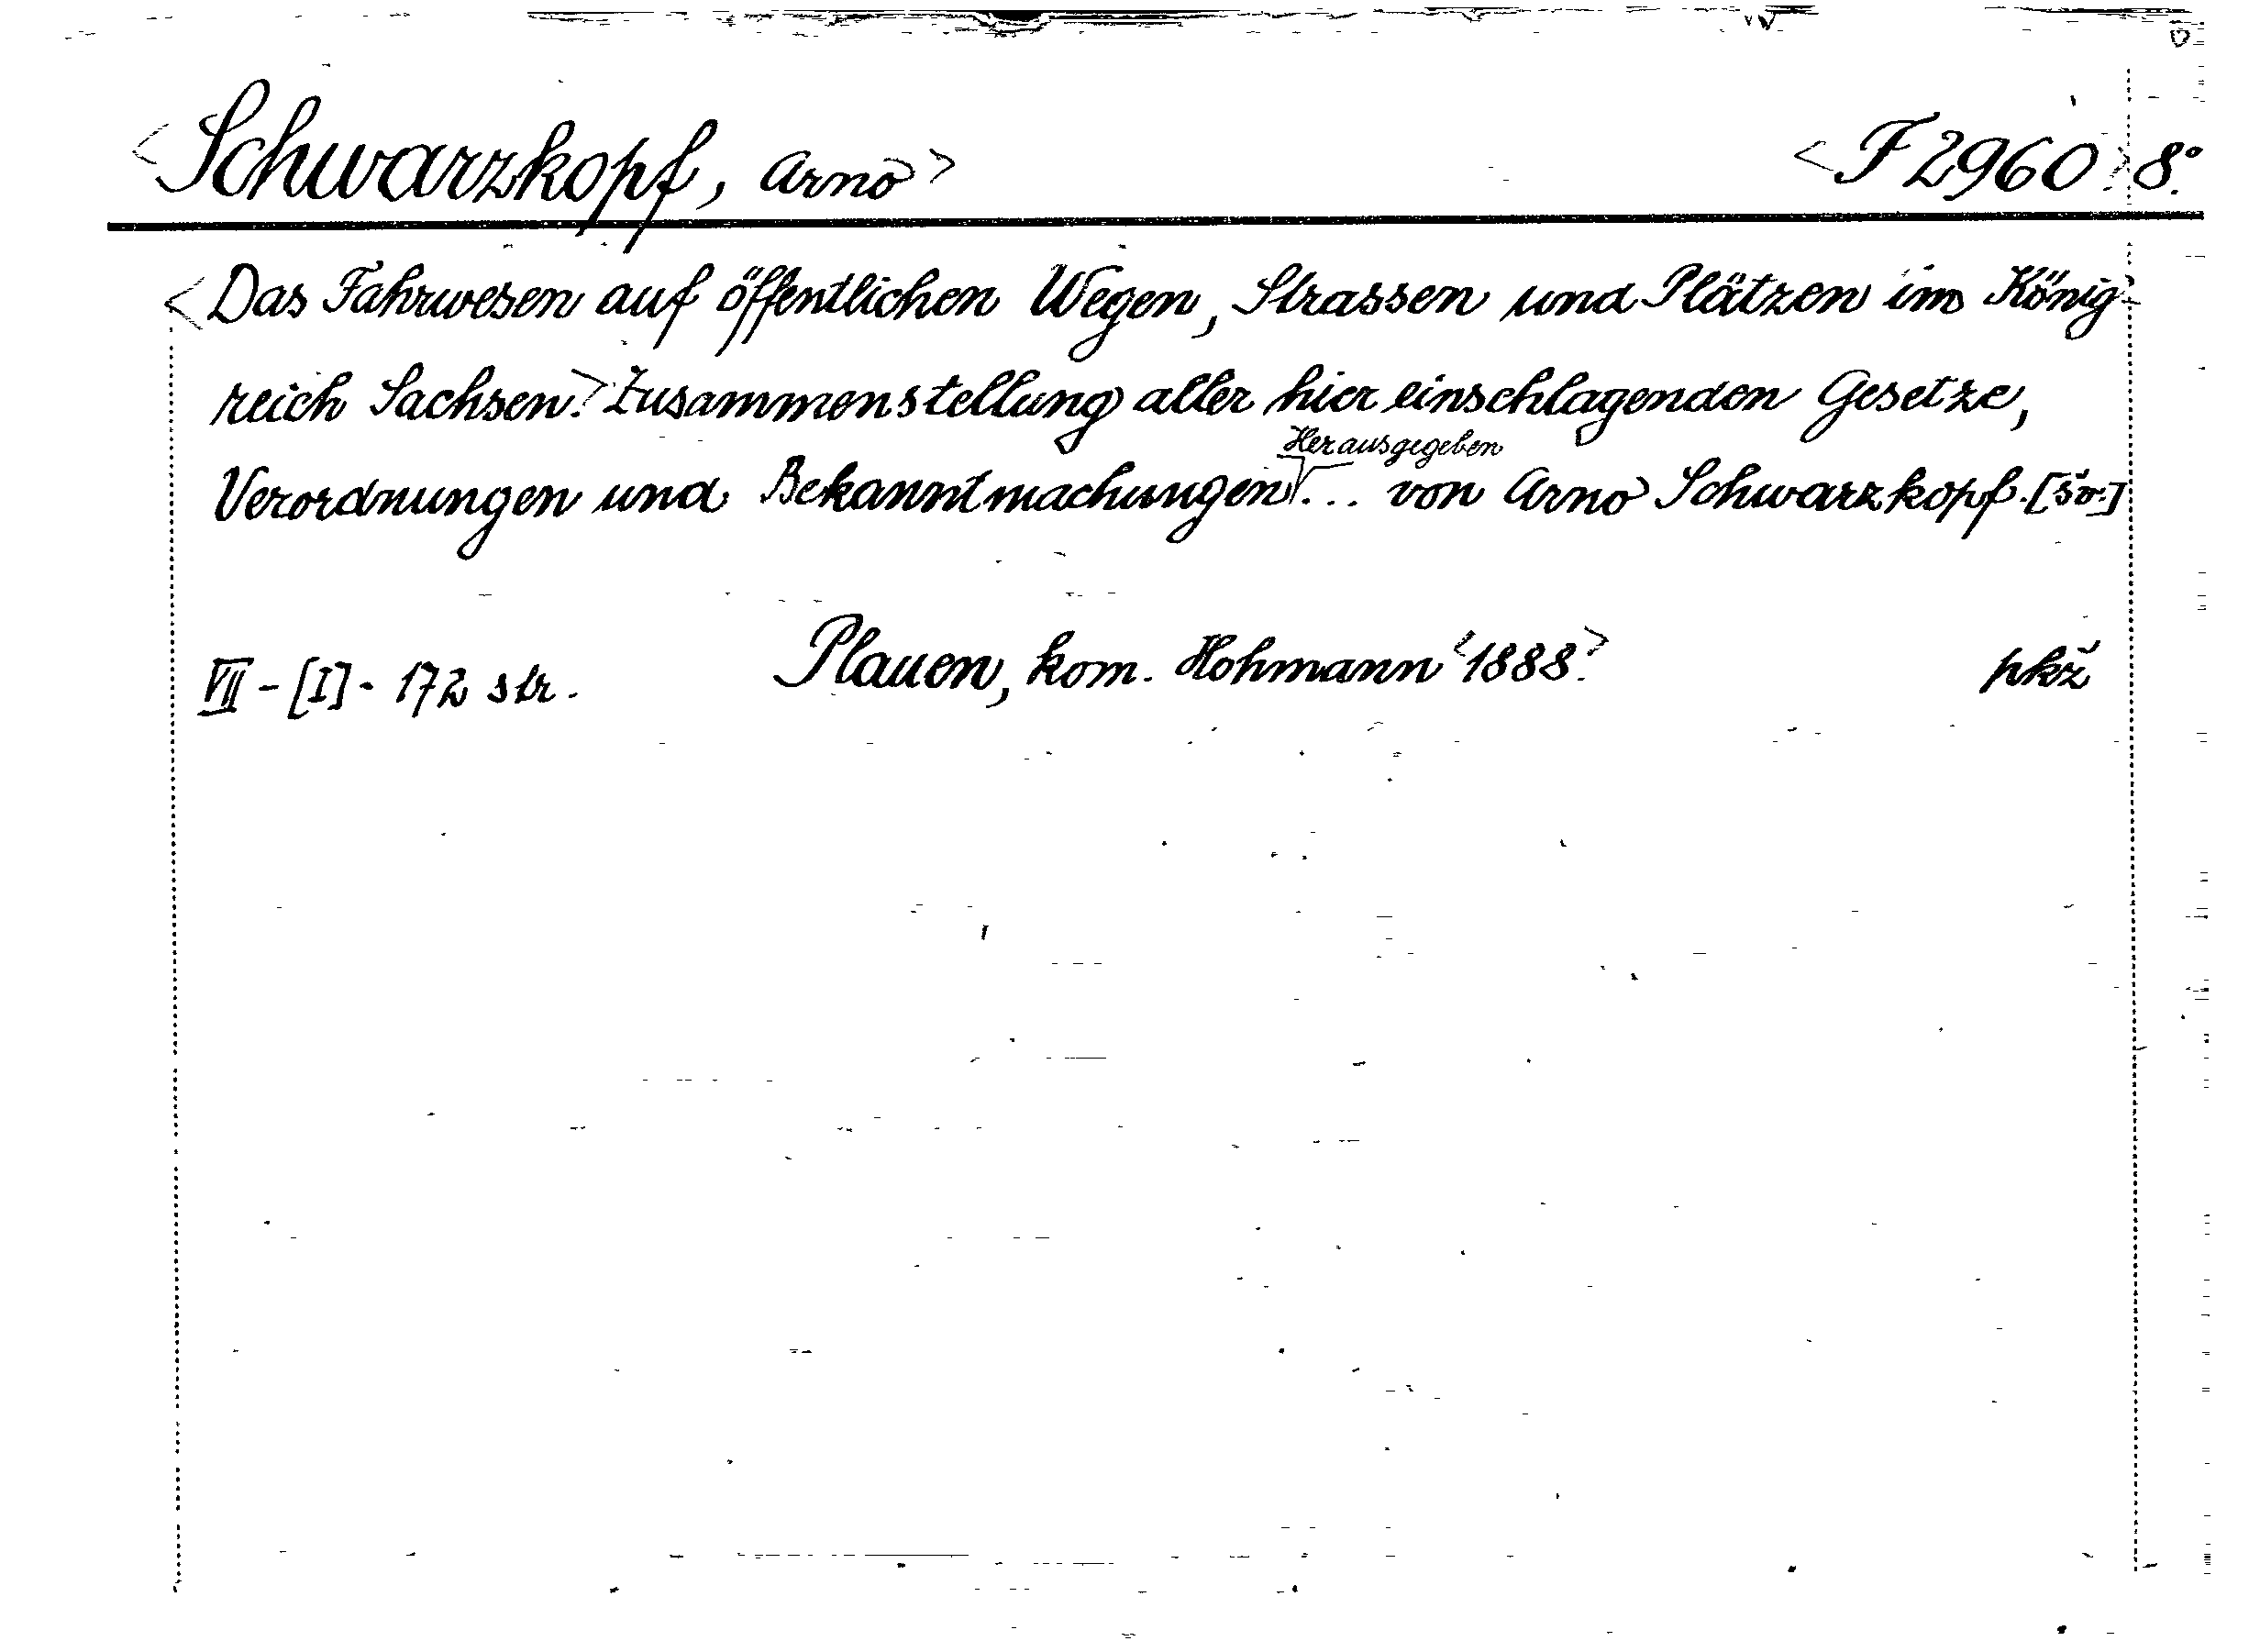 <Schwarzkopf, Arno> <F 2960> 8°.
<Das Fahrwesen auf öffentlichen Wegen, Strassen und Plätzen im König-
reich Sachsen.> Zusammenstellung aller hier einschlagenden Gesetze,
Herausgegeben
Verordnungen und Bekanntmachungen ... von Arno Schwarzkopf. [šv.]
VII - [I] - 172 str. Plauen, kom. Hohmann <1888.> pkž